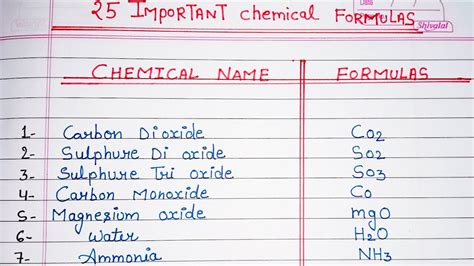 Date
25 IMPORTANT chemical FORMULAS
Shivalal
CHEMICAL NAME FORMULAS
1- Carbon Dioxide CO2
2- Sulphure Di oxide SO2
3- Sulphure Tri oxide SO3
4- Carbon Monoxide CO
5- Magnesium oxide mgO
6- Water H2O
7- Ammonia NH3